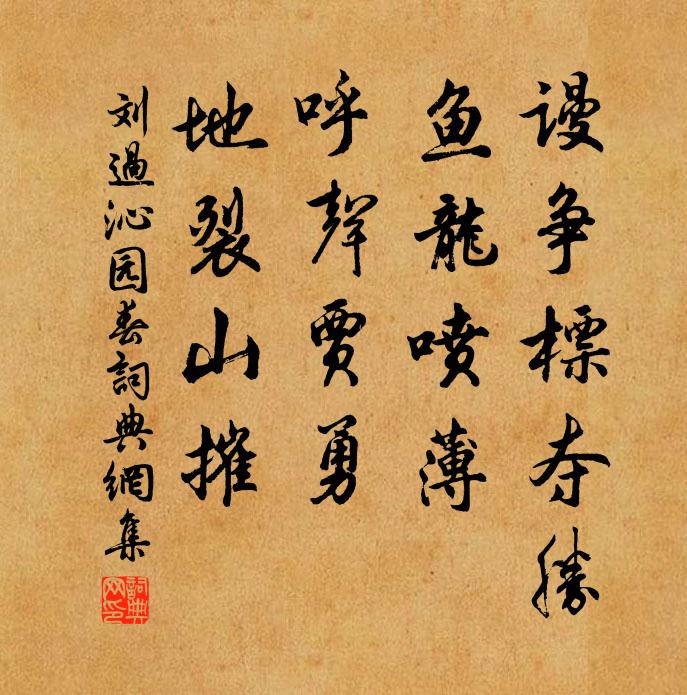 谩争標夺勝
鱼龍喷薄
呼聲賈勇
地裂山摧
刘過沁园春詞典網集
詞典网印